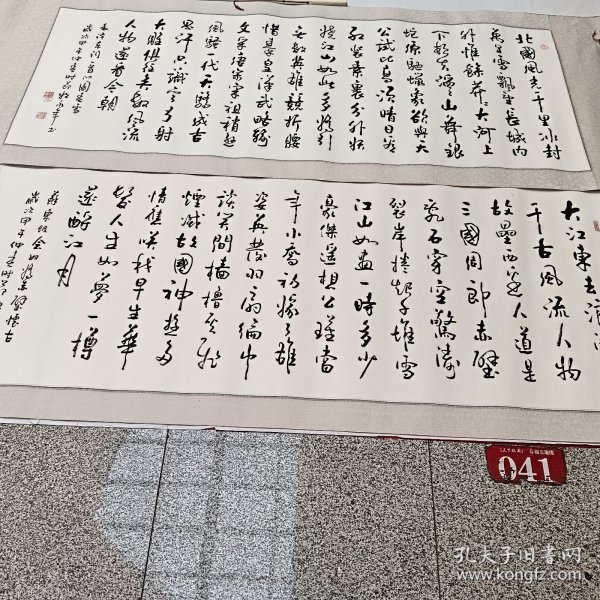 北國風光千里冰封
萬里雪飄望長城内
外惟餘莽々大河上
下頓失滔々山舞銀
蛇原馳蠟象欲與天
公試比高須晴日看
紅裝素裹分外妖
嬈江山如此多嬌引
無數英雄競折腰
惜秦皇漢武略輸
文采唐宗宋祖稍遜
風騷一代天驕成吉
思汗只識彎弓射
大雕俱往矣數風流
人物還看今朝
毛泽东词一首沁園春雪
歲次甲午仲春时
大江東去浪淘
千古風流人物
故壘西邊人道是
三國周郎赤壁
亂石穿空驚濤
裂岸捲起千堆雪
江山如畫一時多少
豪傑遥想公瑾當
年小喬初嫁了雄
姿英發羽扇綸巾
談笑間檣櫓灰飛
煙滅故國神遊多
情應笑我早生華
髮人生如夢一樽
還酹江月
蘇東坡念奴嬌赤壁懷古
歲次甲午仲春
041
孔夫子旧书网
www.kongfz.com